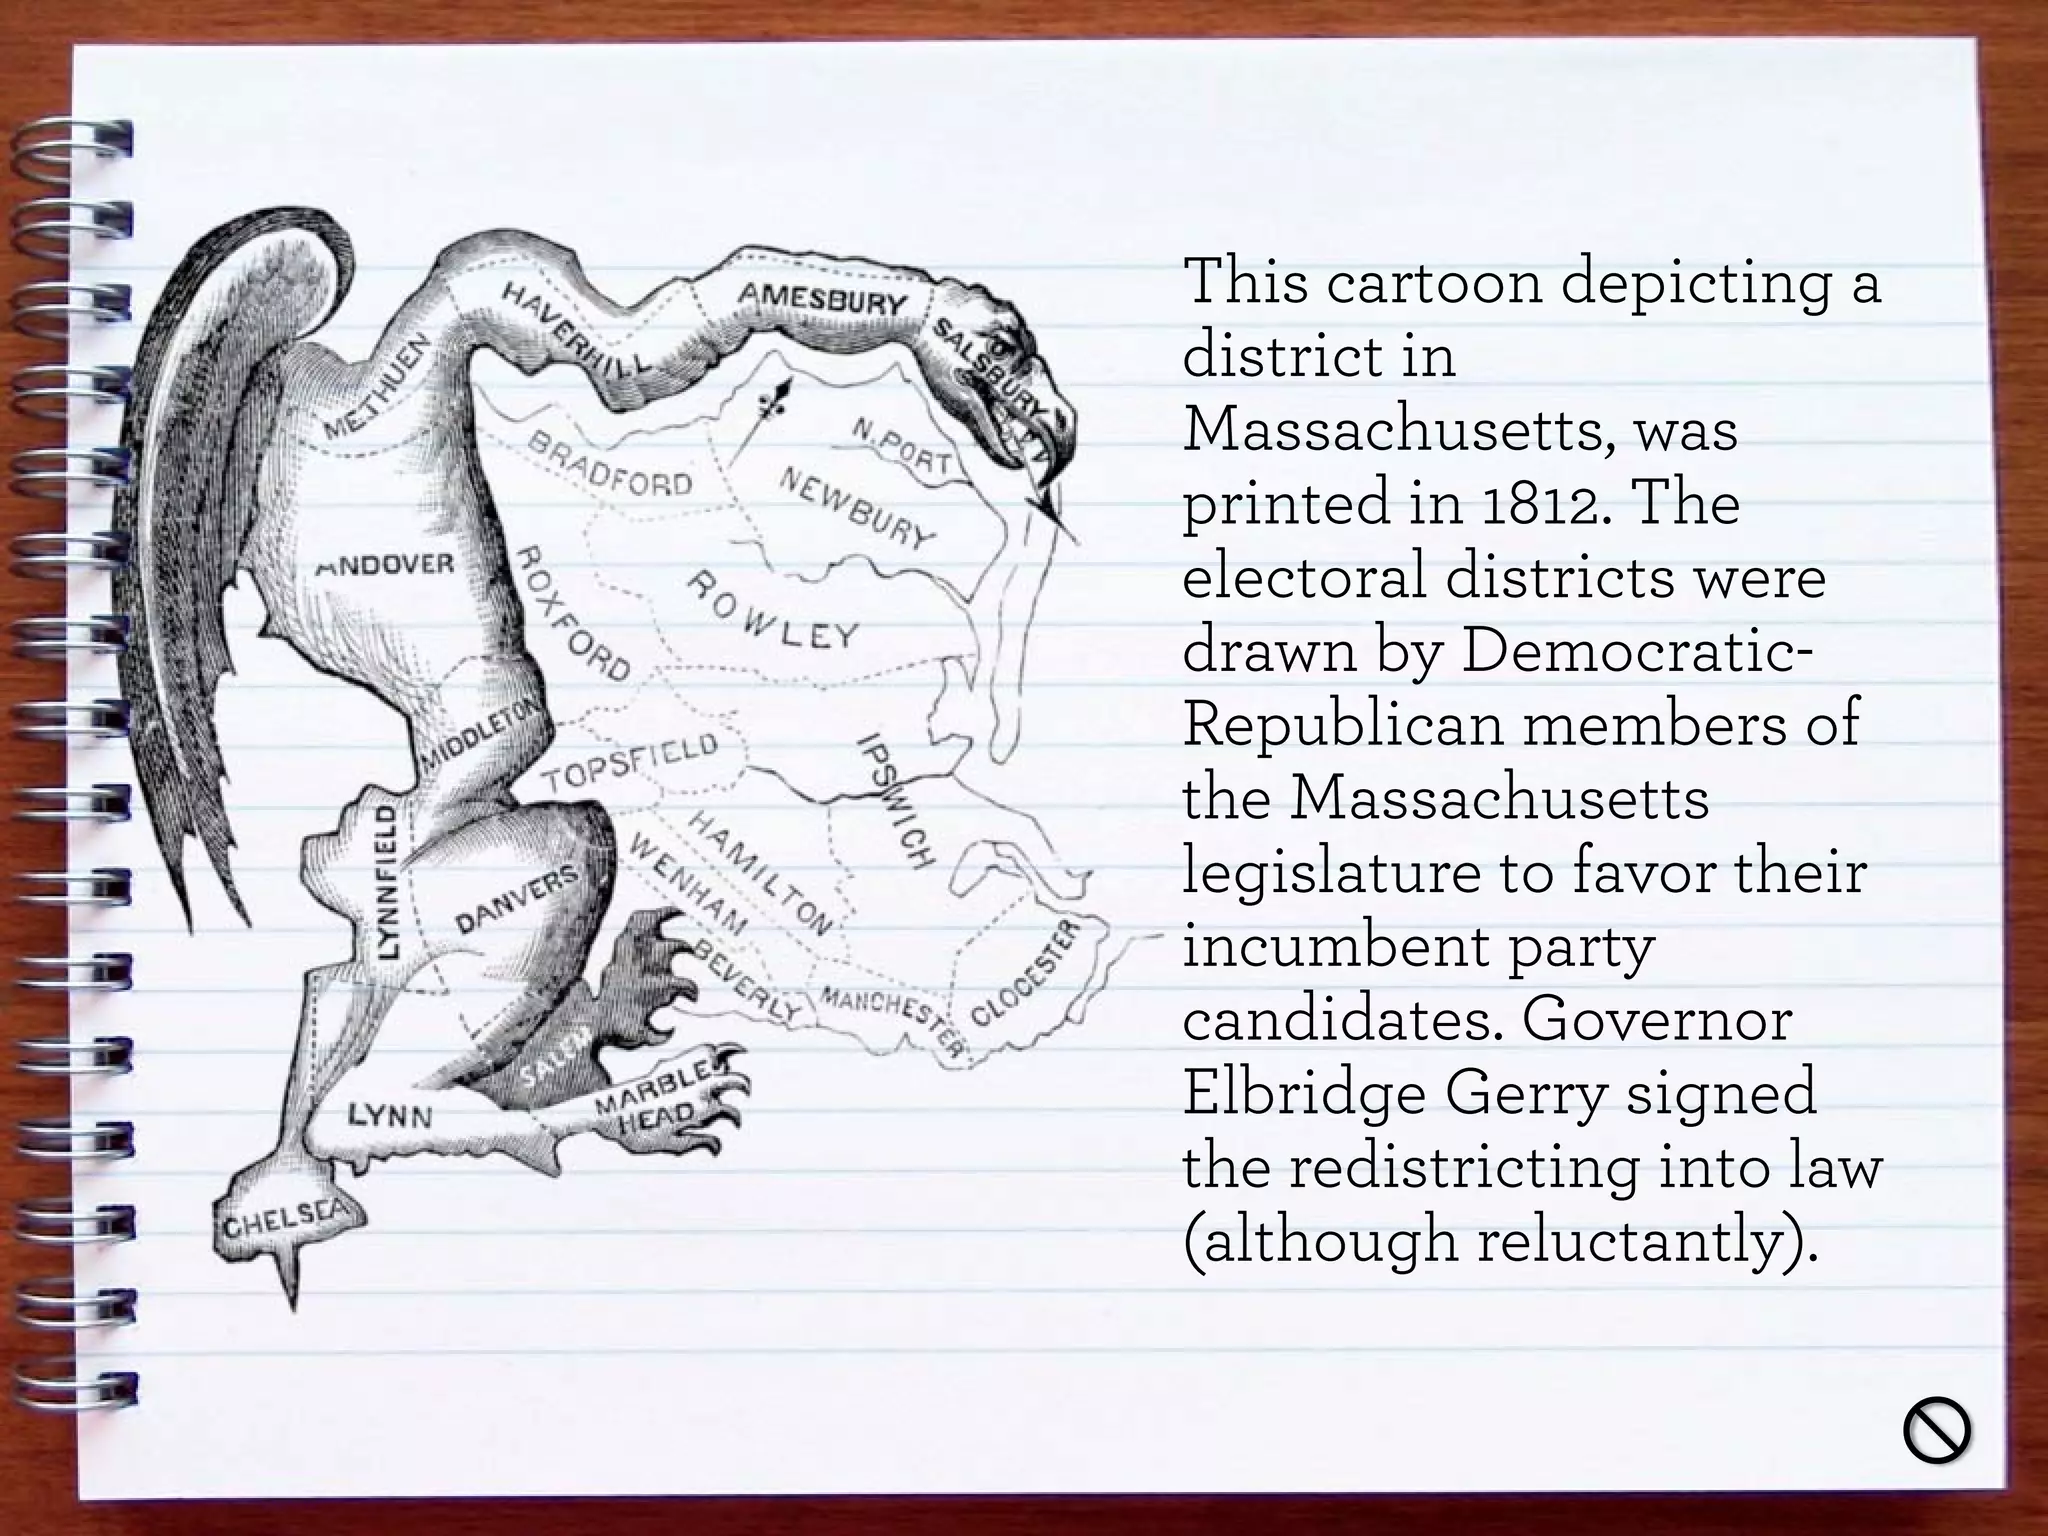 METHUEN
HAVERHILL
AMESBURY
SALSBURY
ANDOVER
BRADFORD
N. PORT
NEWBURY
ROXFORD
ROWLEY
MIDDLETON
TOPSFIELD
IPSWICH
LYNNFIELD
DANVERS
WENHAM
HAMILTON
BEVERLY
MANCHESTER
CLOCESTER
SALEM
LYNN
MARBLE
HEAD
CHELSEA
This cartoon depicting a
district in
Massachusetts, was
printed in 1812. The
electoral districts were
drawn by Democratic-
Republican members of
the Massachusetts
legislature to favor their
incumbent party
candidates. Governor
Elbridge Gerry signed
the redistricting into law
(although reluctantly).